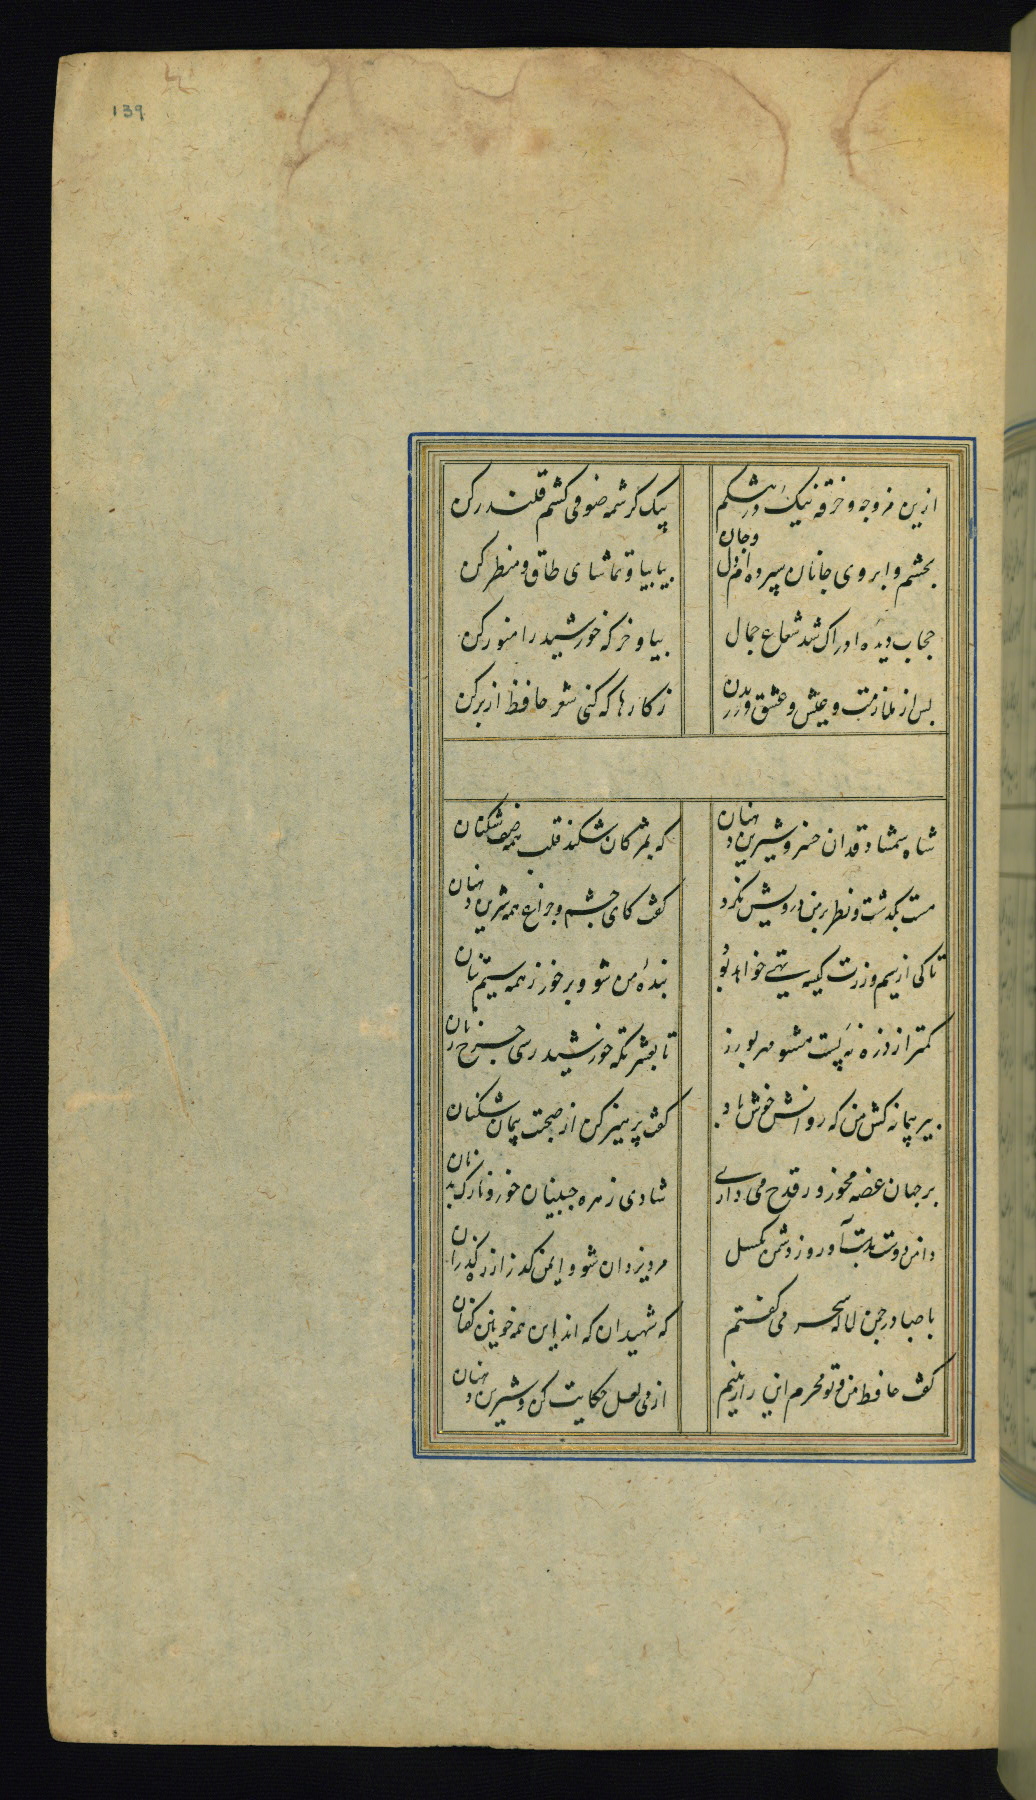 139
ازین مزوجه و خرقه نیک در تشکم
بیک کرشمه صوفی کشم قلندر کن
بچشم و ابروی جانان سپرده ام دل و جان
بیا بیا و تماشای طاق و منظر کن
حجاب دیدهٔ ادراک شد شعاع جمال
بیا و خرکه خورشید را منور کن
پس از ملازمت و عیش و عشق ورزیدن
ز کارها که کنی شعر حافظ از بر کن
شاه شمشاد قدان خسرو شیرین دهنان
که بمژکان شکند قلب همه صف شکنان
مست بکذشت و نظر بر من درویش نکرد
کفت کای چشم و چراغ همه شیرین دهنان
تا کی از سیم و زرت کیسه تهی خواهد بود
بندهٔ من شو و بر خور ز همه سیم تنان
کمتر از ذره نهٔ پست مشو مهر بورز
تا بعشرتکه خورشید رسی چرخ زنان
پیر پیمانه کش من که روانش خوش باد
کفت پرهیز کن از صحبت پیمان شکنان
بر جهان غصه مخور ور قدح می داری
شادی زهره جبینان خور و نازک بدنان
دامن دوست بدست آور و ز دشمن بکسل
مرد یزدان شو و ایمن کذر از
با صبا در چمن لاله سحر می کفتم
که شهیدان که اند این همه خونین کفنان
کفت حافظ من و تو محرم این راز نه‌ایم
از می لعل حکایت کن و شیرین دهنان